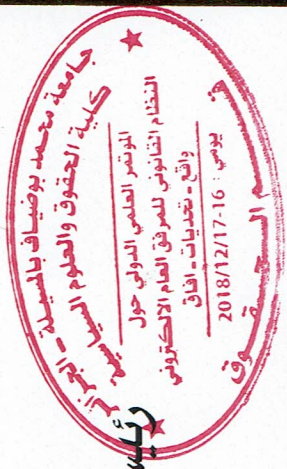 جامعة محمد بوضياف بالمسيلة - الجزائر
كلية الحقوق والعلوم السياسية
المؤتمر العلمي الدولي حول
النظام القانوني للمرفق العام الالكتروني
واقع - تحديات - آفاق
يومي : 16-2018/12/17
قسم الحقوق
رئيس